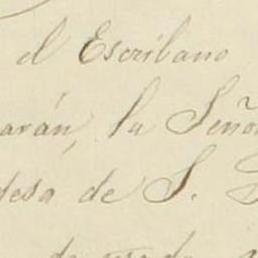 el Escribano
arán, la Seño
desa de S.
de